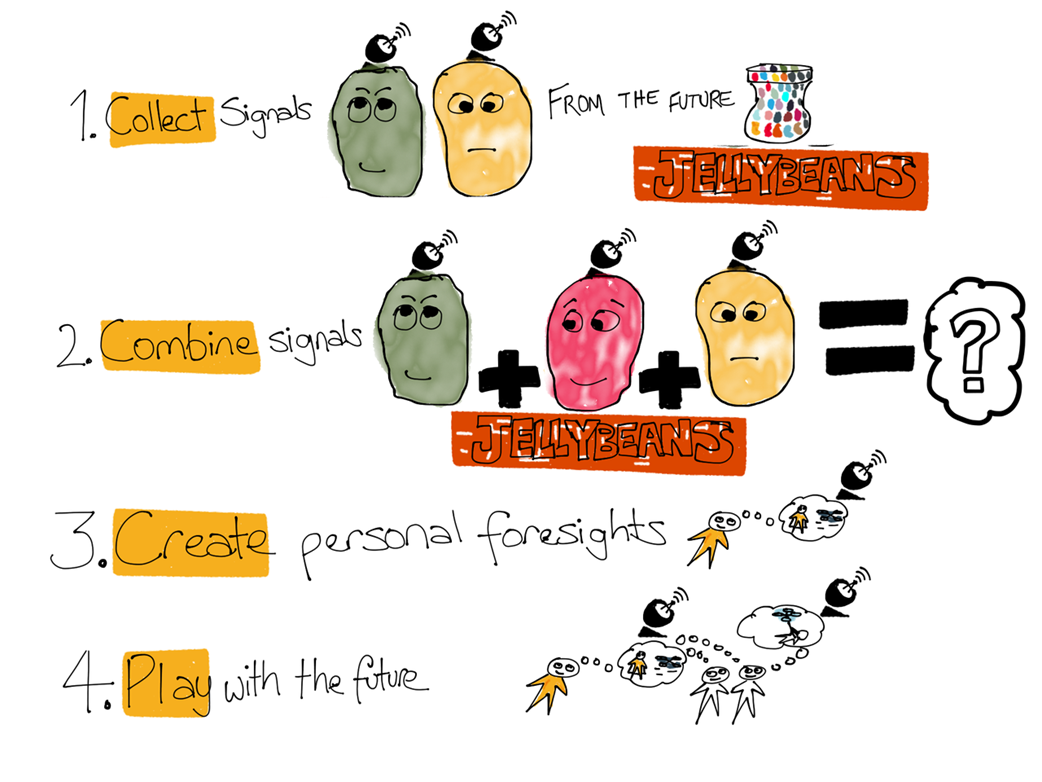 1. Collect Signals FROM THE FUTURE
JELLYBEANS
2. Combine signals = ?
JELLYBEANS
3. Create personal foresights
4. Play with the future